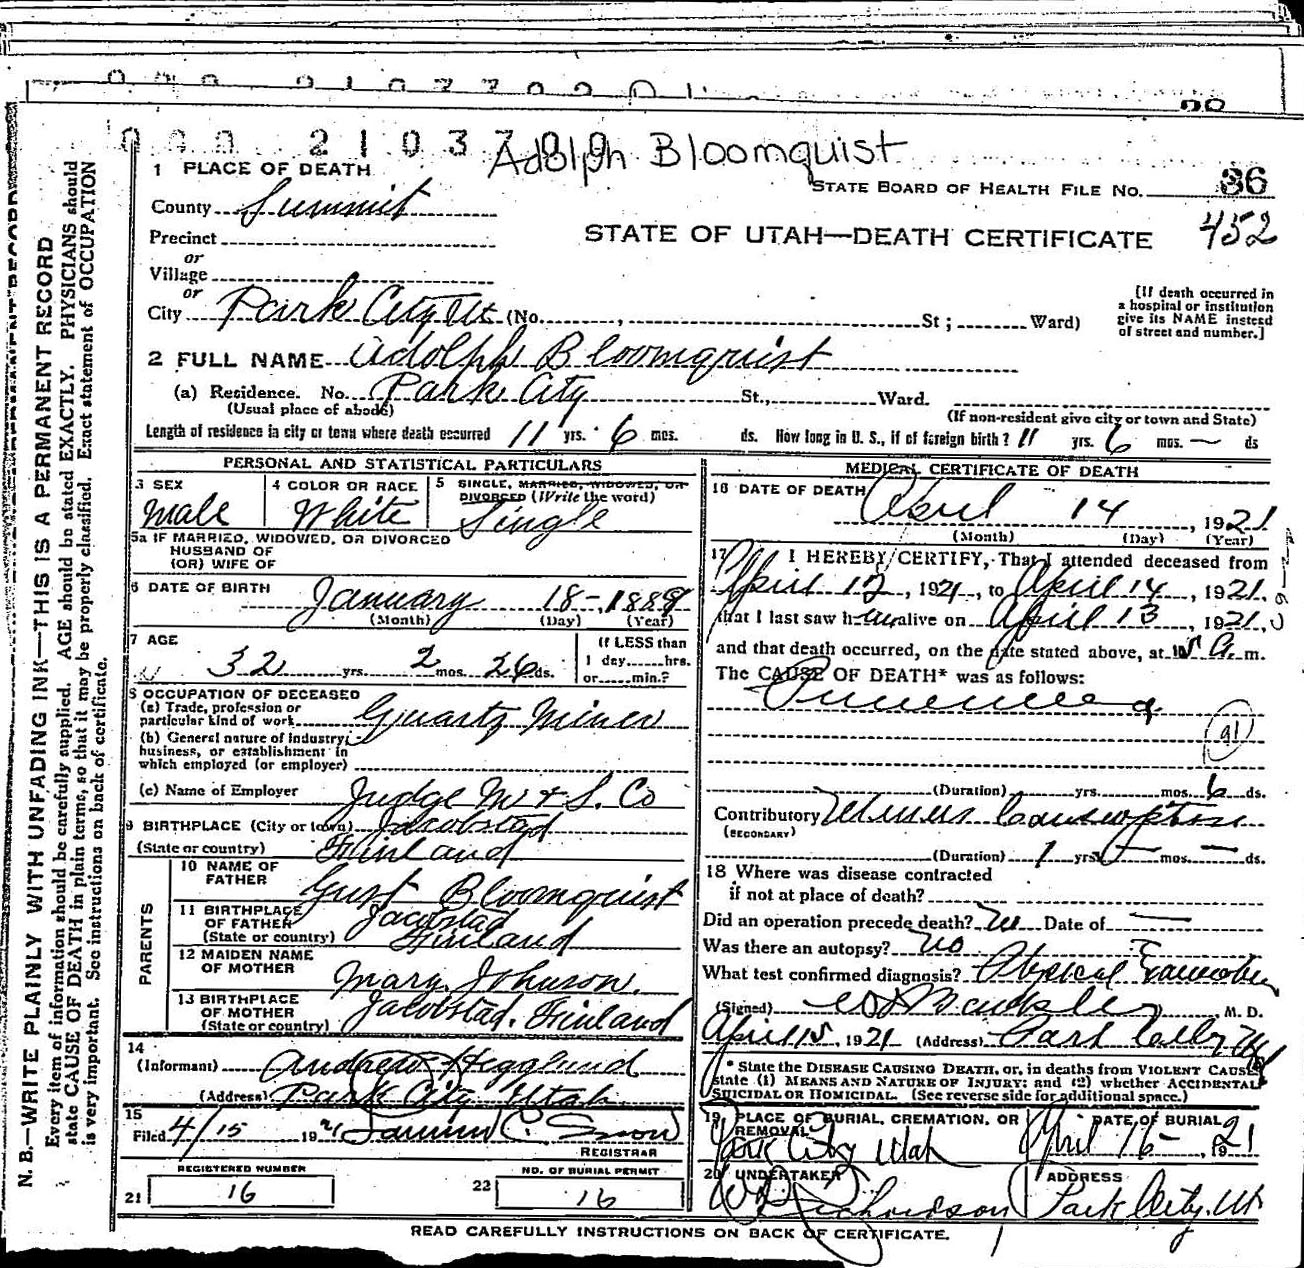 Adolph Bloomquist
1 PLACE OF DEATH
STATE BOARD OF HEALTH FILE NO. 36
County Summit
STATE OF UTAH—DEATH CERTIFICATE 452
Precinct
or
Village
or
City Park City Ut (No. , St; Ward)
[If death occurred in
a hospital or institution
give its NAME instead
of street and number.]
2 FULL NAME Adolph Bloomquist
(a) Residence. No. Park City St., Ward.
(Usual place of abode) (If non-resident give city or town and State)
Length of residence in city or town where death occurred 11 yrs. 6 mos. ds. How long in U. S., if of foreign birth? 11 yrs. 6 mos. — ds
PERSONAL AND STATISTICAL PARTICULARS
3 SEX Male
4 COLOR OR RACE White
5 SINGLE, MARRIED, WIDOWED, OR
DIVORCED (Write the word)
Single
5a IF MARRIED, WIDOWED, OR DIVORCED
HUSBAND OF
(OR) WIFE OF
6 DATE OF BIRTH January 18-, 1889
(Month) (Day) (Year)
7 AGE
32 yrs. 2 mos. 26 ds.
If LESS than
1 day......hrs.
or......min.?
8 OCCUPATION OF DECEASED
(a) Trade, profession or
particular kind of work Quartz Miner
(b) General nature of industry,
business, or establishment in
which employed (or employer)
(c) Name of Employer Judge M & S. Co
9 BIRTHPLACE (City or town) Jacobstad
(State or country) Finland
PARENTS
10 NAME OF
FATHER Gust Bloomquist
11 BIRTHPLACE
OF FATHER Jacobstad
(State or country) Finland
12 MAIDEN NAME
OF MOTHER Mary Johnson.
13 BIRTHPLACE
OF MOTHER Jacobstad, Finland
(State or country)
14
(Informant) Andrew Hegglund
(Address) Park City Utah.
15
Filed 4/15 1921
REGISTRAR
REGISTERED NUMBER
21 16
NO. OF BURIAL PERMIT
22 16
MEDICAL CERTIFICATE OF DEATH
16 DATE OF DEATH April 14, 1921
(Month) (Day) (Year)
17 I HEREBY CERTIFY, That I attended deceased from
April 12, 1921, to April 14, 1921.
that I last saw him alive on April 13, 1921,
and that death occurred, on the date stated above, at A. m.
The CAUSE OF DEATH* was as follows:
Pneumonia
91
(Duration) yrs. mos. 6 ds.
Contributory Miners Consumption
(SECONDARY)
(Duration) 1 yrs. mos. — ds.
18 Where was disease contracted
if not at place of death?
Did an operation precede death? No Date of —
Was there an autopsy? No
What test confirmed diagnosis? Physical
(Signed) M. D.
April 15, 1921 (Address) Park City
* State the DISEASE CAUSING DEATH, or, in deaths from VIOLENT CAUSES
state (1) MEANS AND NATURE OF INJURY; and (2) whether ACCIDENTAL
SUICIDAL OR HOMICIDAL. (See reverse side for additional space.)
19 PLACE OF BURIAL, CREMATION, OR
REMOVAL
Park City Utah
DATE OF BURIAL
April 16-, 1921
20 UNDERTAKER
Richardson
ADDRESS
Park City, Ut
READ CAREFULLY INSTRUCTIONS ON BACK OF CERTIFICATE.
N. B.—WRITE PLAINLY WITH UNFADING INK—THIS IS A PERMANENT RECORD
Every item of information should be carefully supplied. AGE should be stated EXACTLY. PHYSICIANS should
state CAUSE OF DEATH in plain terms, so that it may be properly classified. Exact statement of OCCUPATION
is very important. See instructions on back of certificate.